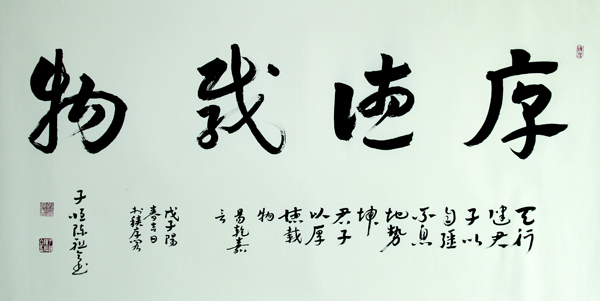 厚德載物
天行
健君
子以
自強
不息
地勢
坤
君子
以厚
德載
物
易乾嘉
言
戊子陽
春吉日
子恒陈祖书